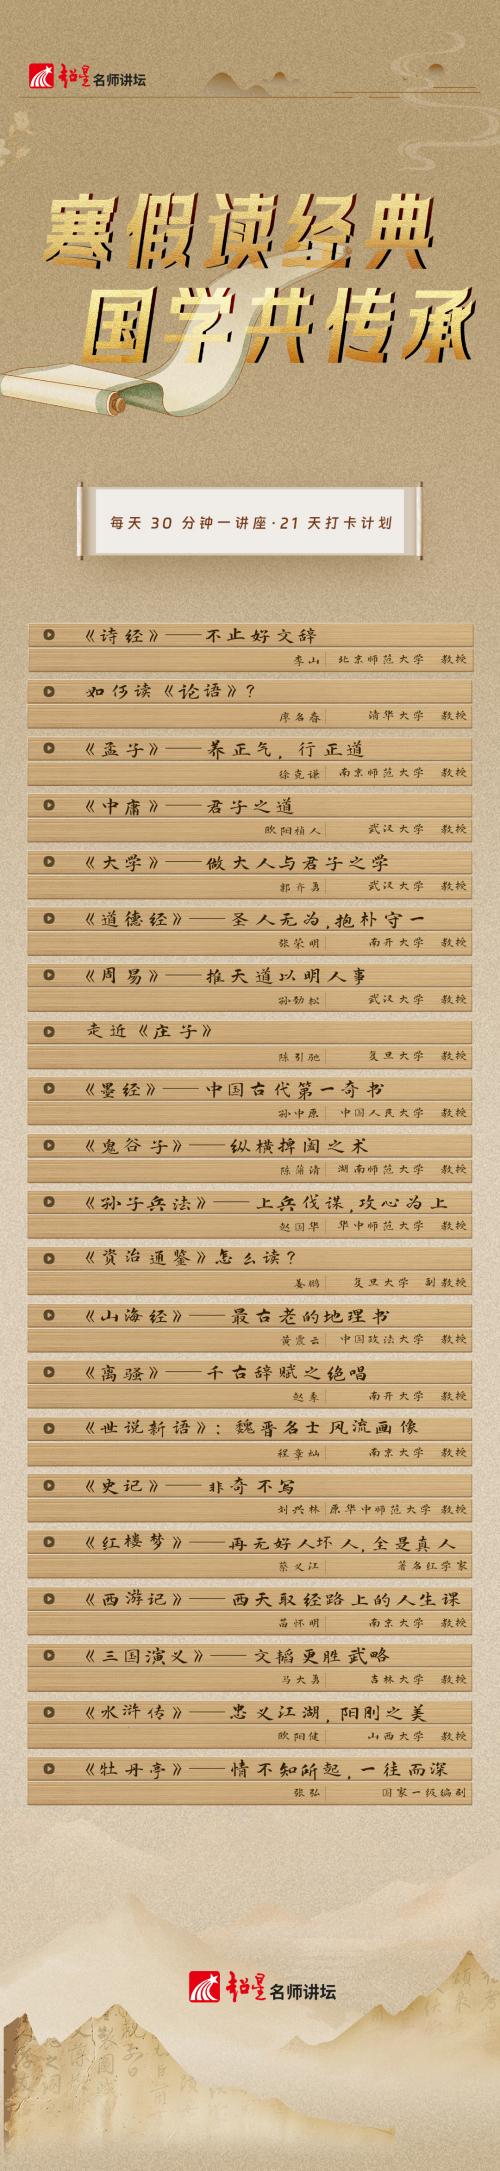 超星名师讲坛
寒假读经典
国学共传承
每天 30 分钟一讲座·21 天打卡计划
《诗经》——不止好文辞
李山 北京师范大学 教授
如何读《论语》?
廖名春 清华大学 教授
《孟子》——养正气, 行正道
徐克谦 南京师范大学 教授
《中庸》——君子之道
欧阳祯人 武汉大学 教授
《大学》——做大人与君子之学
郭齐勇 武汉大学 教授
《道德经》——圣人无为,抱朴守一
张荣明 南开大学 教授
《周易》——推天道以明人事
孙劲松 武汉大学 教授
走近《庄子》
陈引驰 复旦大学 教授
《墨经》——中国古代第一奇书
孙中原 中国人民大学 教授
《鬼谷子》——纵横捭阖之术
陈蒲清 湖南师范大学 教授
《孙子兵法》——上兵伐谋,攻心为上
赵国华 华中师范大学 教授
《资治通鉴》怎么读?
姜鹏 复旦大学 副教授
《山海经》——最古老的地理书
黄震云 中国政法大学 教授
《离骚》——千古辞赋之绝唱
赵季 南开大学 教授
《世说新语》: 魏晋名士风流画像
程章灿 南京大学 教授
《史记》——非奇不写
刘兴林 原华中师范大学 教授
《红楼梦》——再无好人坏人,全是真人
蔡义江 著名红学家
《西游记》——西天取经路上的人生课
苗怀明 南京大学 教授
《三国演义》——文韬更胜武略
马大勇 吉林大学 教授
《水浒传》——忠义江湖,阳刚之美
欧阳健 山西大学 教授
《牡丹亭》——情不知所起,一往而深
张弘 国家一级编剧
超星名师讲坛